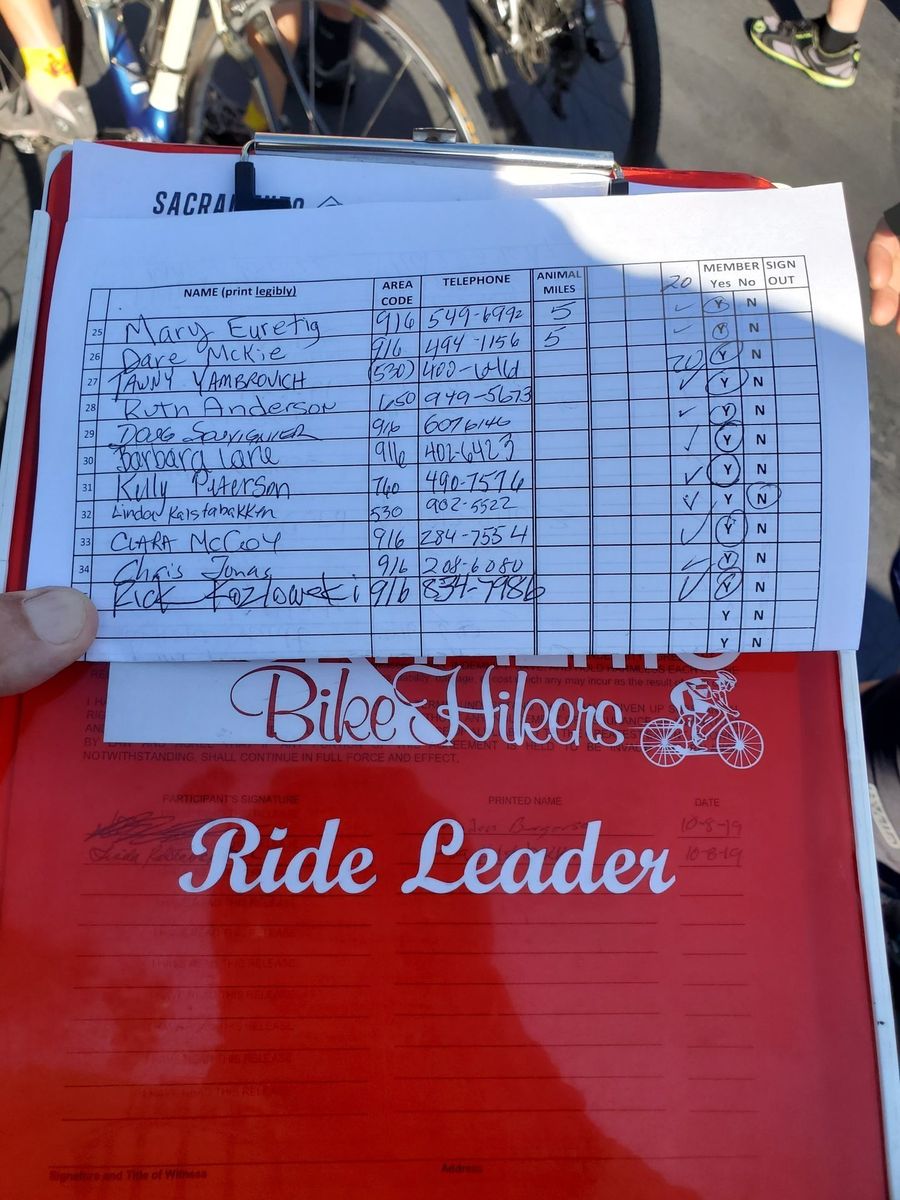 SACRAMENTO
NAME (print legibly) AREA CODE TELEPHONE ANIMAL MILES 20 MEMBER Yes No SIGN OUT
25 Mary Euretig 916 549-6992 5 ✓ Y N
26 Dave McKie 916 494-1156 5 ✓ Y N
27 TAWNY YAMBROVICH (530) 400-6461 20 Y N
28 Ruth Anderson 650 949-5673 ✓ Y N
29 DOUG 916 6076146 ✓ Y N
30 Barbara Lane 916 402-6423 ✓ Y N
31 Kelly Peterson 760 490-7576 ✓ Y N
32 Linda 530 902-5522 ✓ Y N
33 CLARA McCoy 916 284-7554 ✓ Y N
34 Chris Jonas 916 208-6080 ✓ Y N
Rick Kozlowski 916 834-7986 ✓ Y N
Y N
Y N
Bike Hikers
NOTWITHSTANDING, SHALL CONTINUE IN FULL FORCE AND EFFECT.
PARTICIPANT'S SIGNATURE PRINTED NAME DATE
10-8-19
10-8-19
Ride Leader
Signature and Title of Witness Address